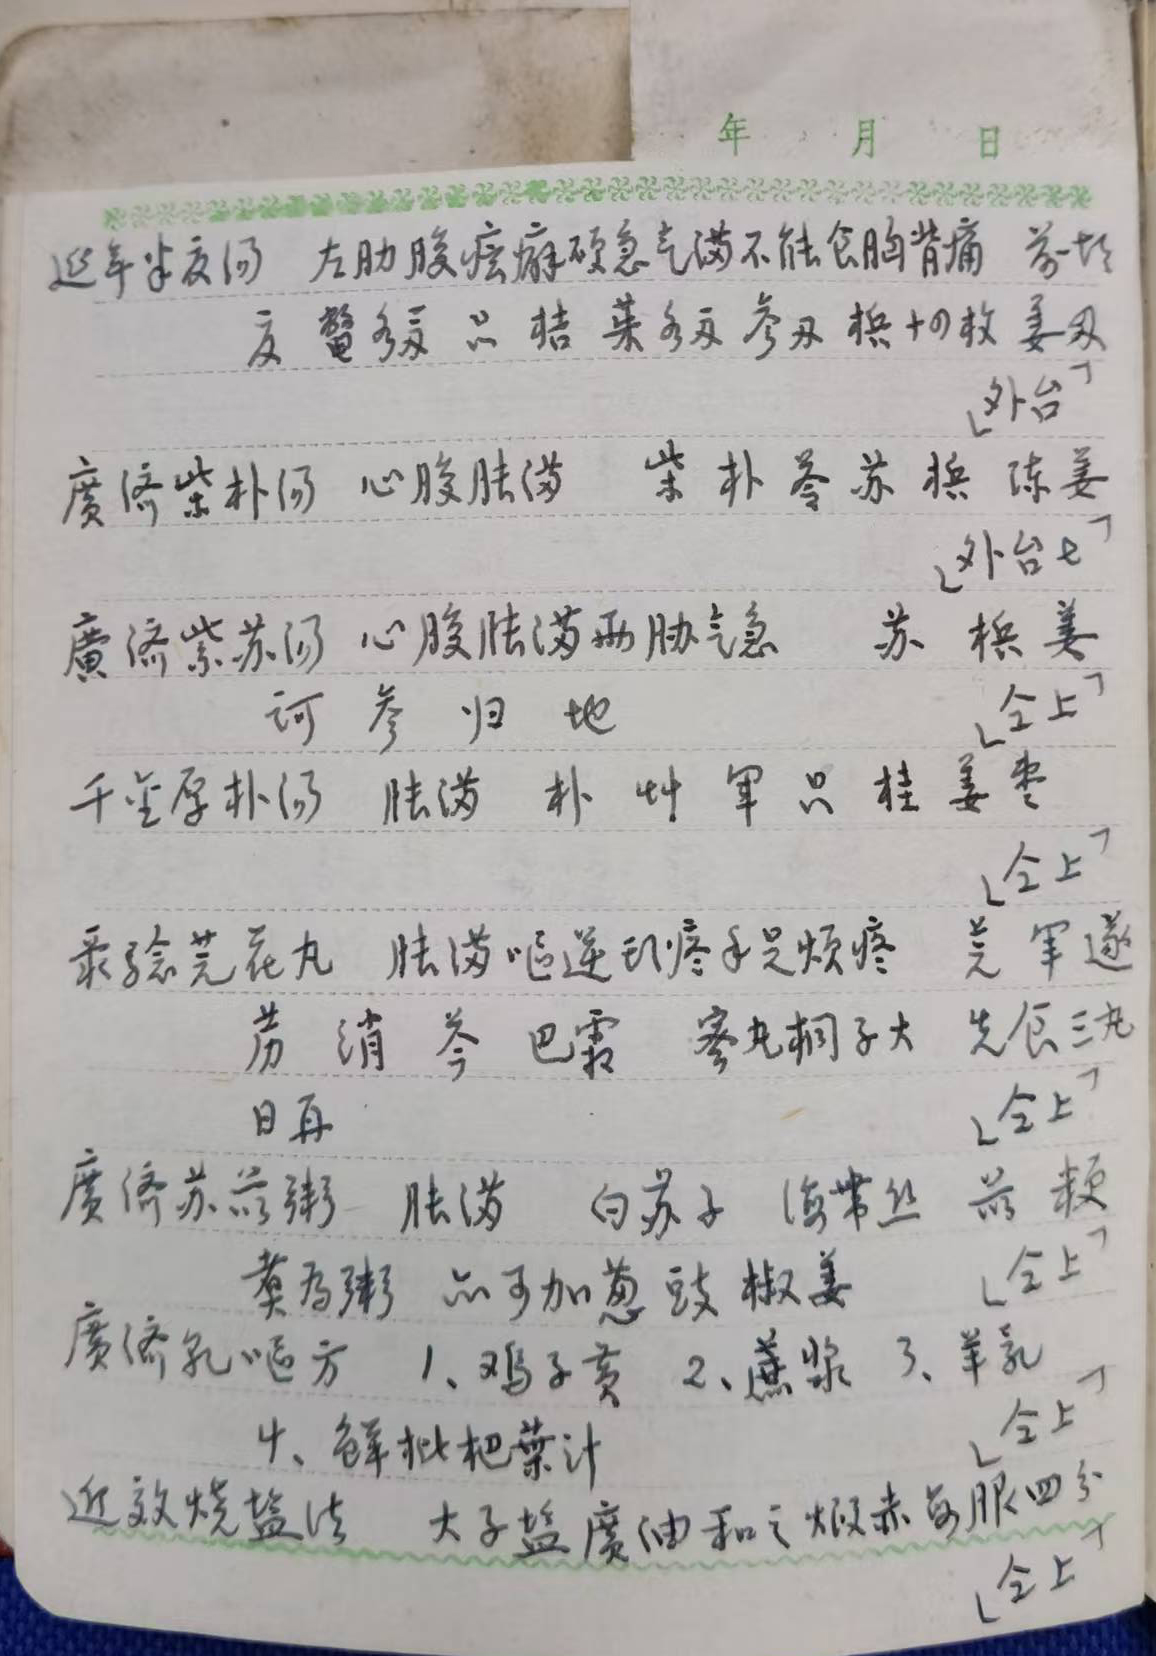 年 月 日
近年半夏汤 左肋腹痃癖硬急气满不能食胸背痛 前胡
夏 鳖 只 桔 参 槟十四枚 姜
「外台」
廣济柴朴汤 心腹胀满 柴 朴 苓 苏 槟 陈 姜
「外台七」
廣济紫苏汤 心腹胀满两胁气急 苏 槟 姜
诃 参 归 地 「仝上」
千金厚朴汤 胀满 朴 艸 军 只 桂 姜 枣
「仝上」
芫花丸 胀满呕逆 疼手足烦疼 芫 军 遂
苈 消 芩 巴霜 蜜丸桐子大 先食三丸
日再 「仝上」
廣济苏 粥 胀满 白苏子 海带丝 粳
煮为粥 亦可加葱 豉 椒 姜 「仝上」
廣济乳呕方 1、鸡子黄 2、蔗浆 3、羊乳
4、鲜枇杷葉汁 「仝上」
近效烧盐法 大子盐 廣油和之煅赤每服四分
「仝上」